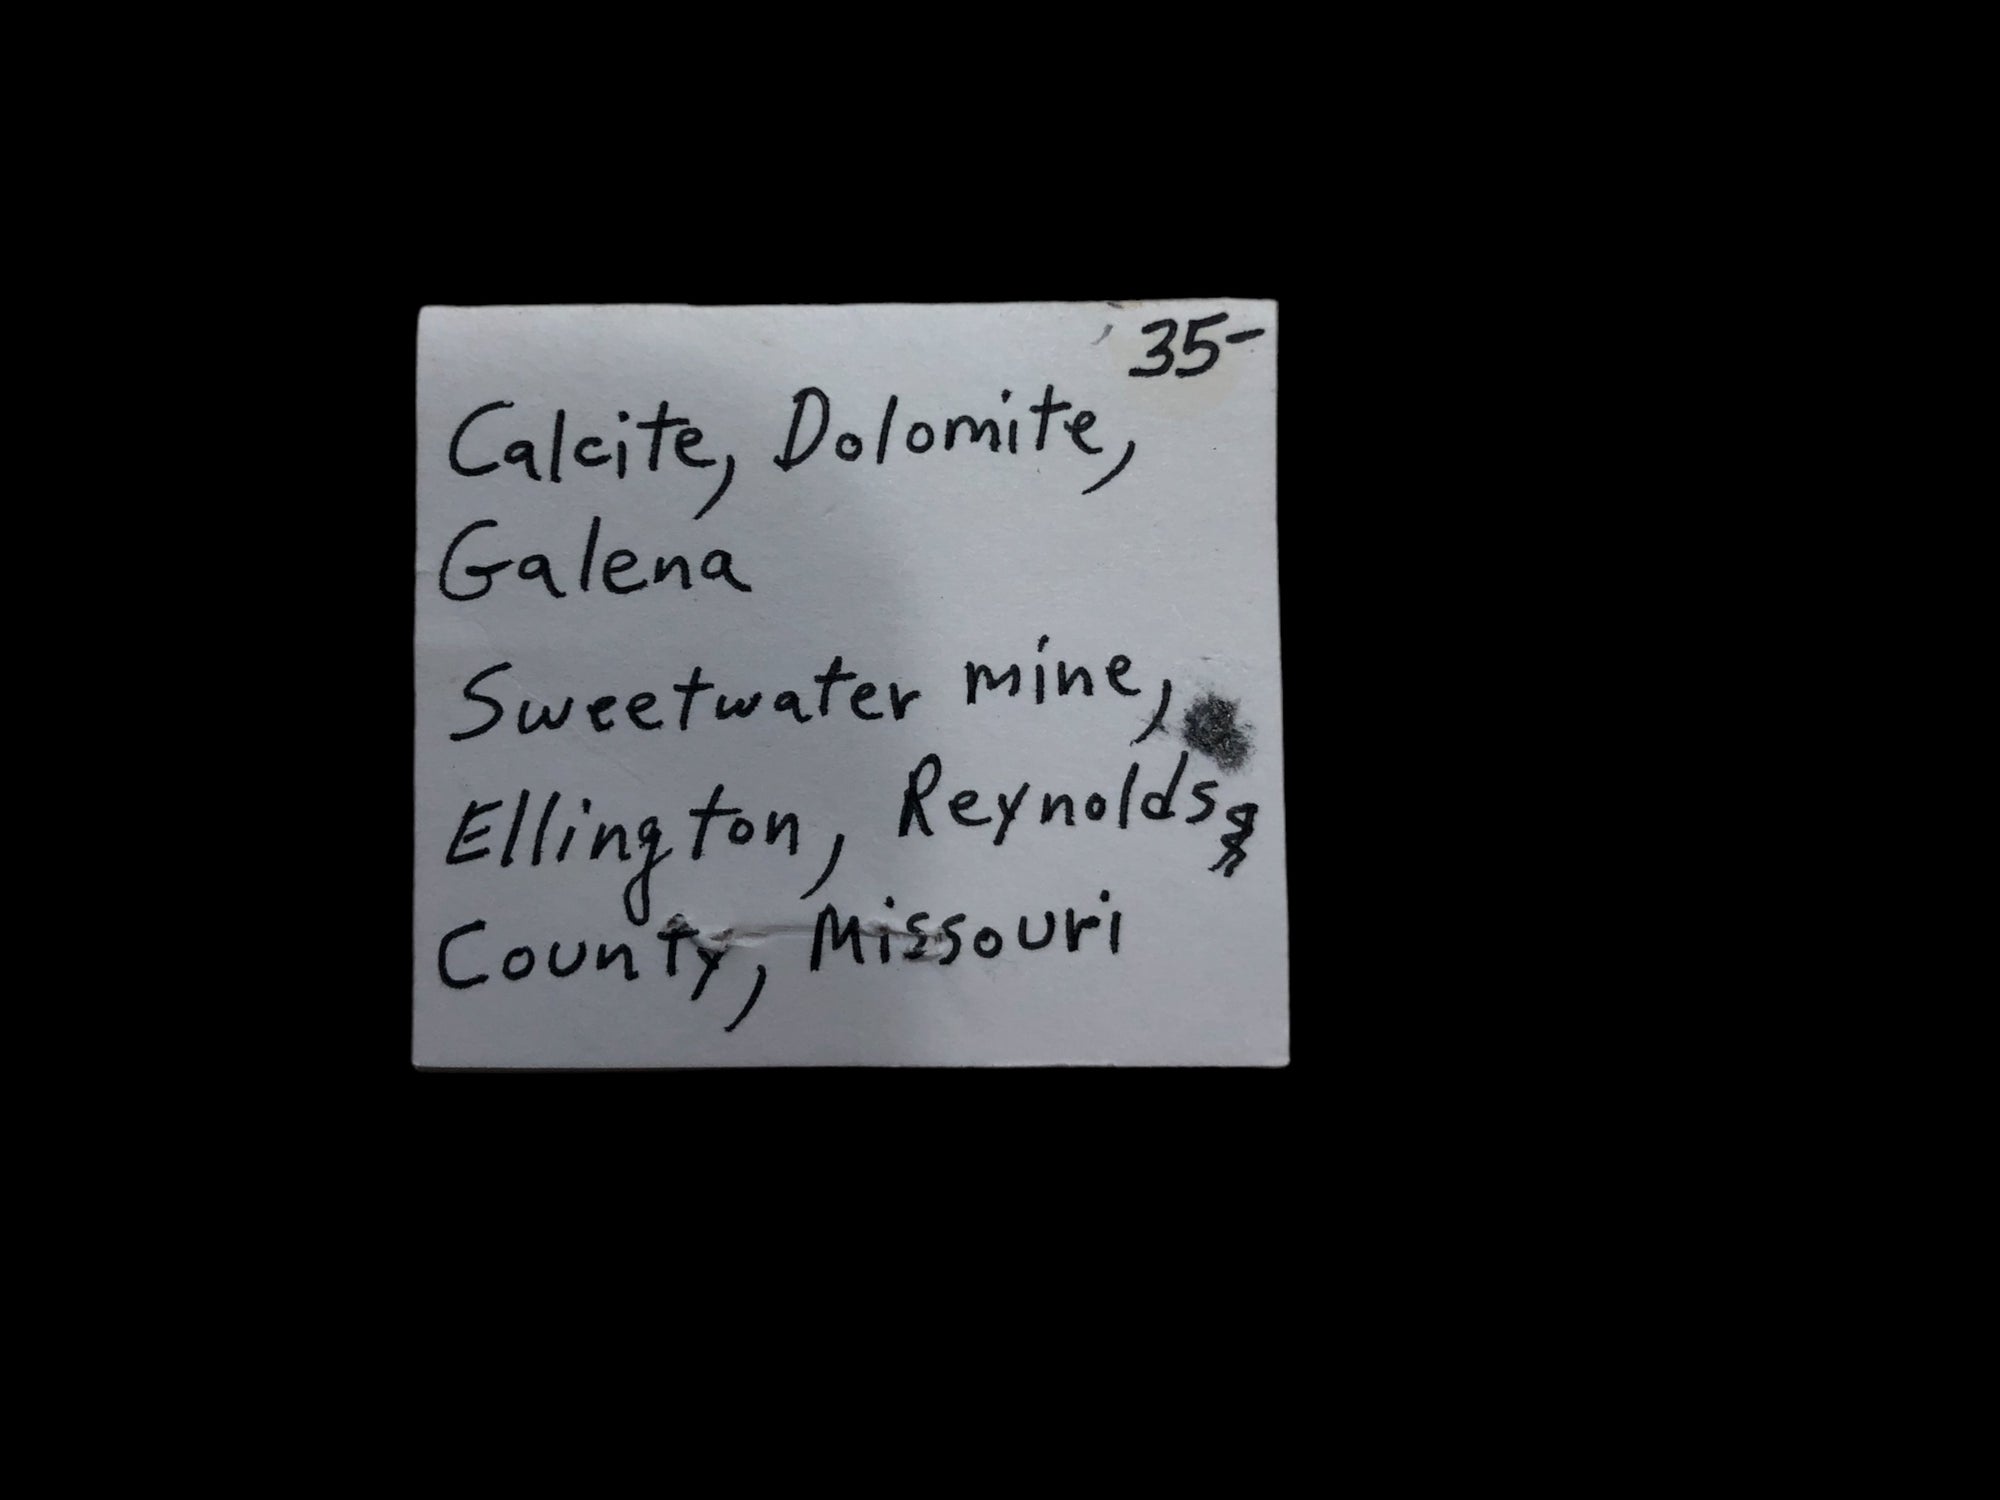 35-
Calcite, Dolomite,
Galena
Sweetwater mine,
Ellington, Reynolds
County, Missouri